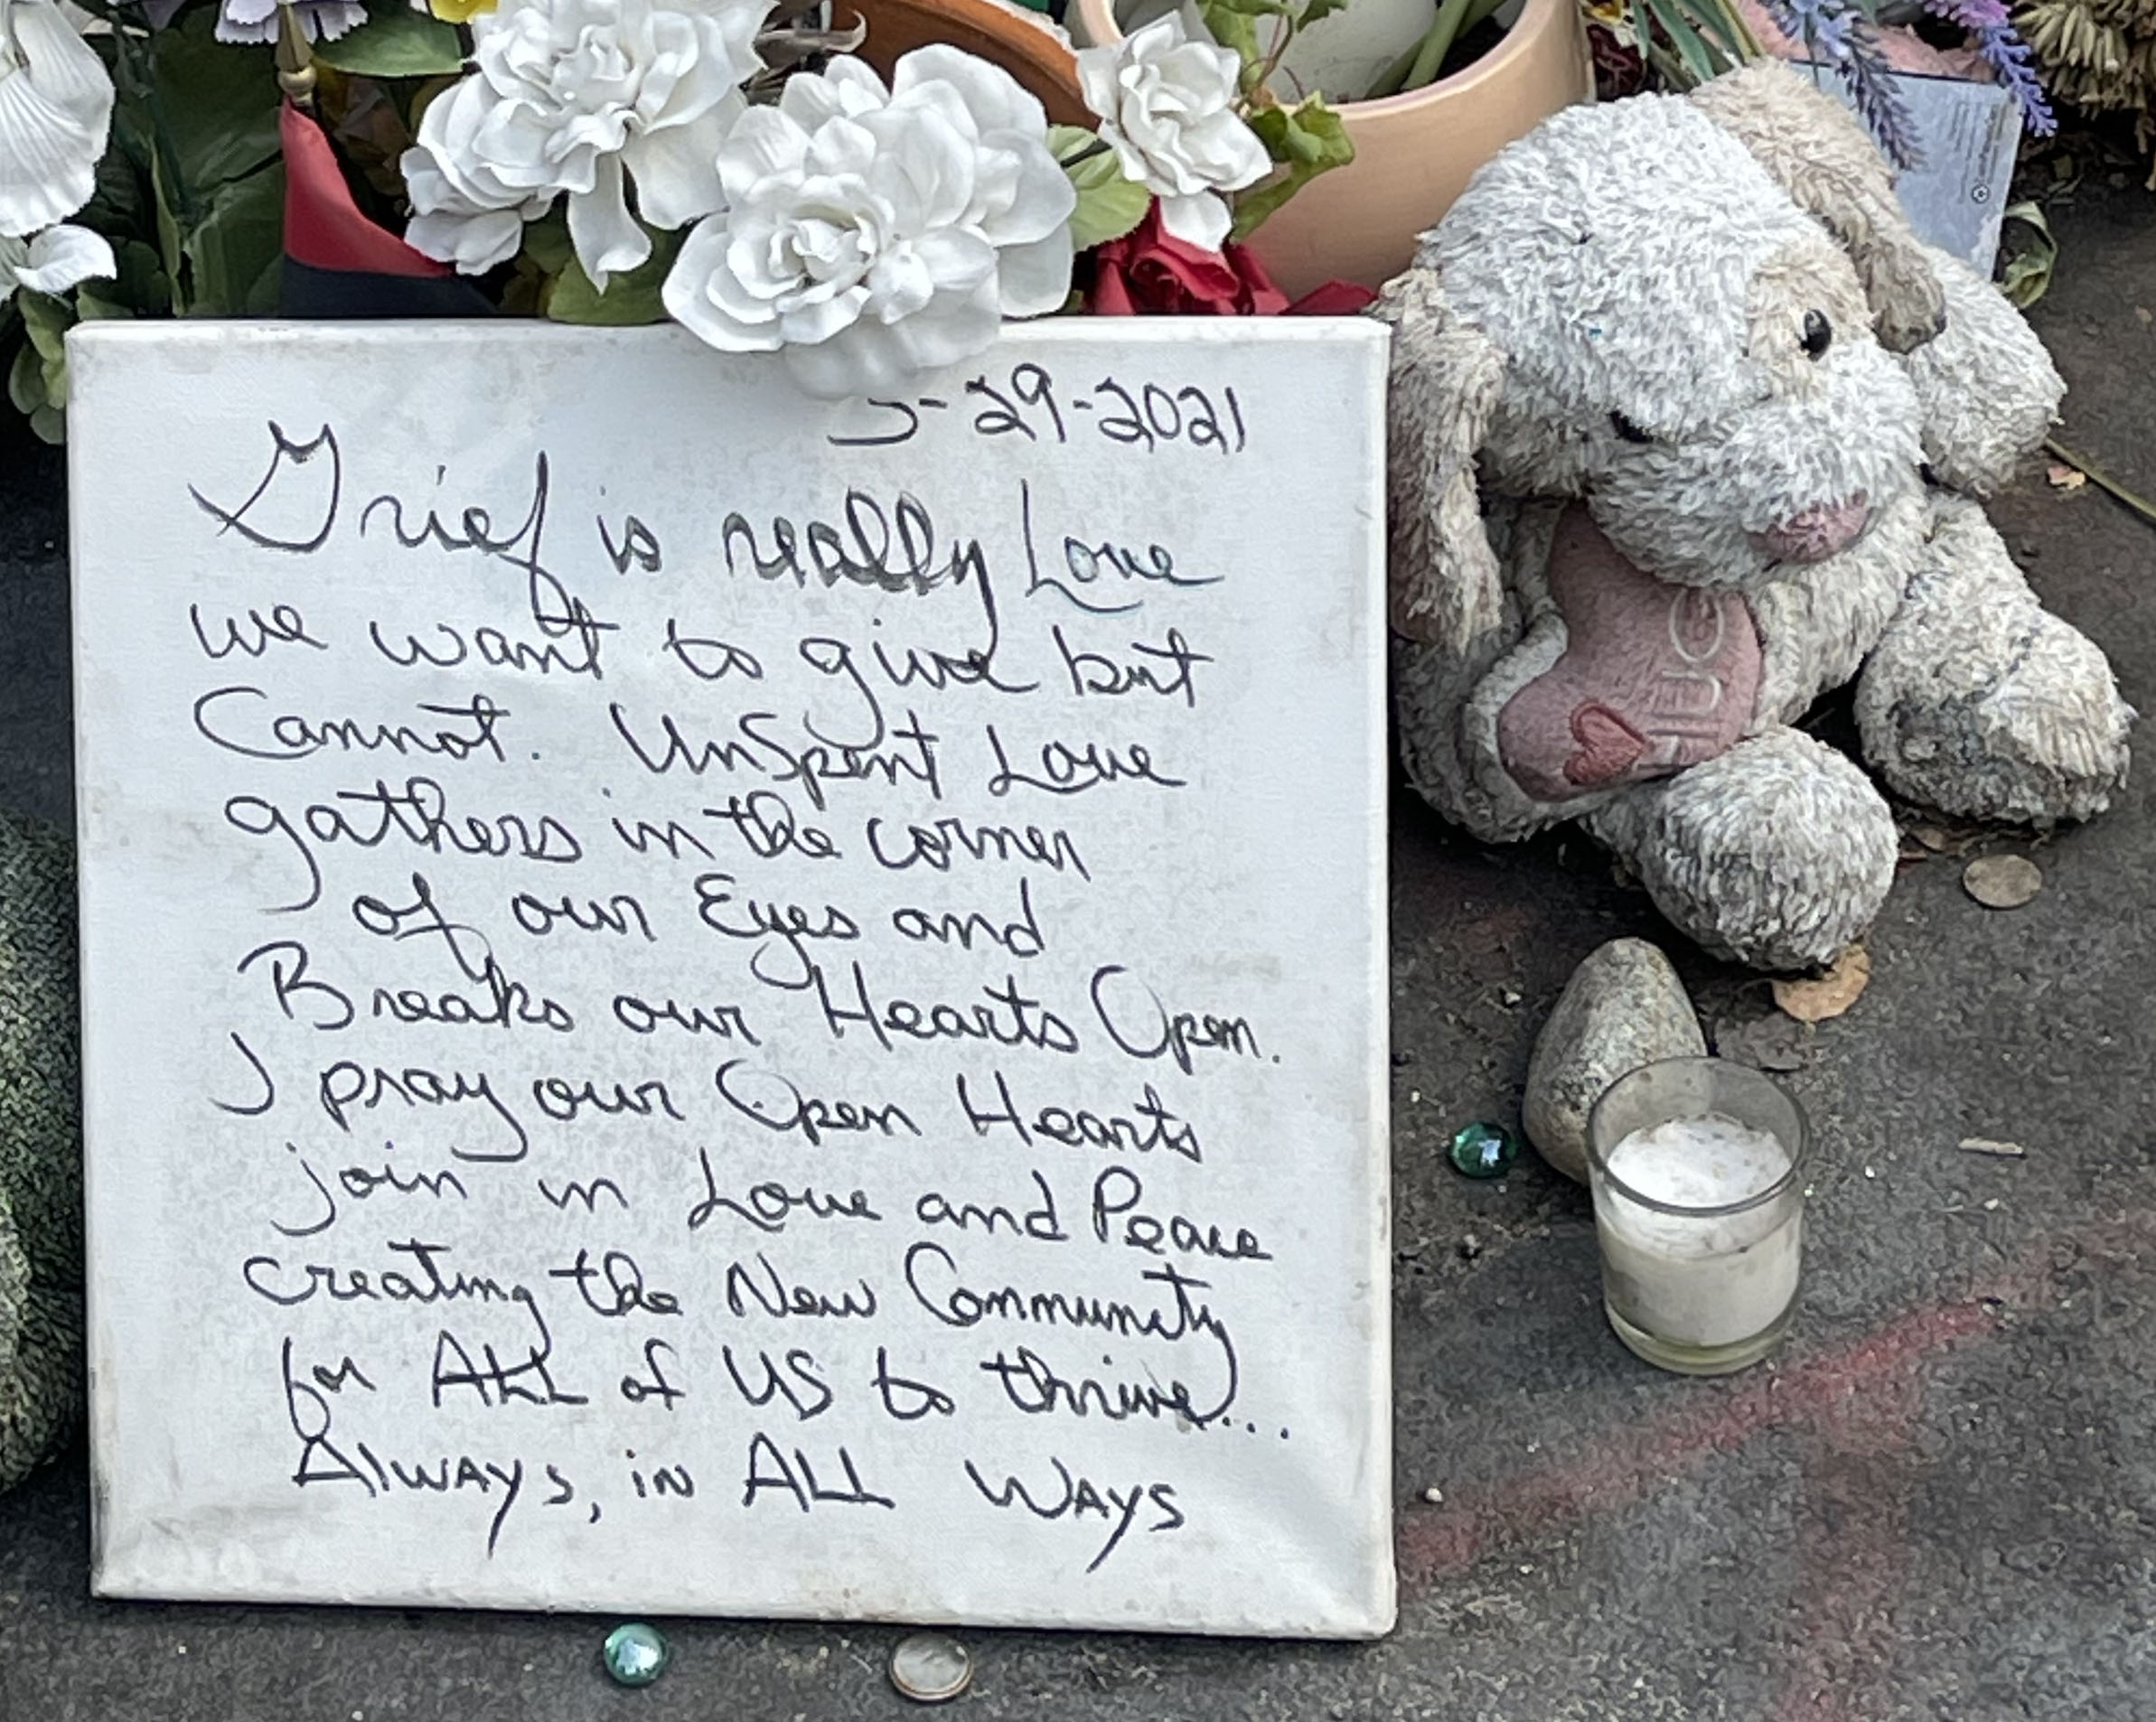 5-29-2021
Grief is really Love
we want to give but
Cannot. UnSpent Love
gathers in the corner
of our Eyes and
Breaks our Hearts Open.
I pray our Open Hearts
join in Love and Peace
creating the New Community
for ALL of US to thrive...
Always, in ALL WAYS
HUG